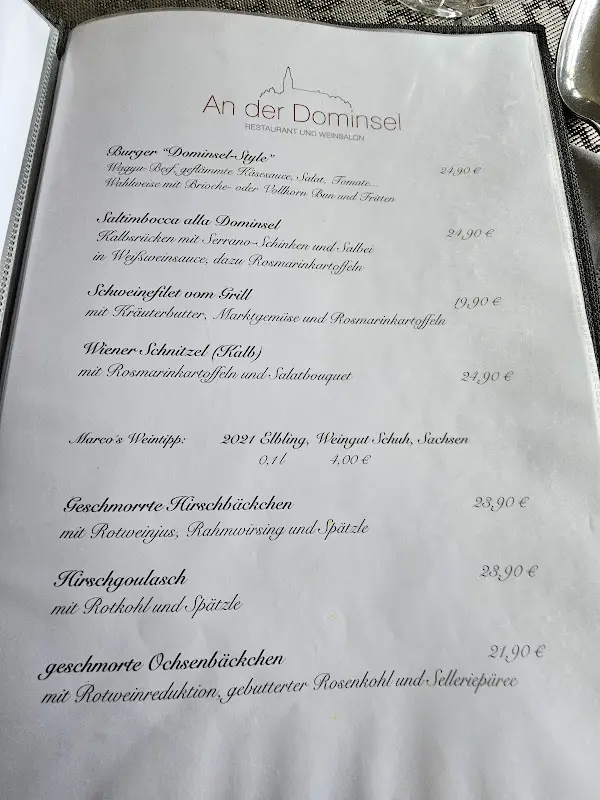 An der Dominsel
RESTAURANT UND WEINSALON
Burger "Dominsel-Style" 24,90 €
Wagyu-Beef, geflämmte Käsesauce, Salat, Tomate...
Wahlweise mit Brioche- oder Vollkorn Bun und Fritten
Saltimbocca alla Dominsel 24,90 €
Kalbsrücken mit Serrano-Schinken und Salbei
in Weißweinsauce, dazu Rosmarinkartoffeln
Schweinefilet vom Grill 19,90 €
mit Kräuterbutter, Marktgemüse und Rosmarinkartoffeln
Wiener Schnitzel (Kalb)
mit Rosmarinkartoffeln und Salatbouquet 24,90 €
Marco's Weintipp: 2021 Elbling, Weingut Schuh, Sachsen
0,1 l 4,00 €
Geschmorrte Hirschbäckchen 23,90 €
mit Rotweinjus, Rahmwirsing und Spätzle
Hirschgoulasch 23,90 €
mit Rotkohl und Spätzle
geschmorte Ochsenbäckchen 21,90 €
mit Rotweinreduktion, gebutterter Rosenkohl und Selleriepüree